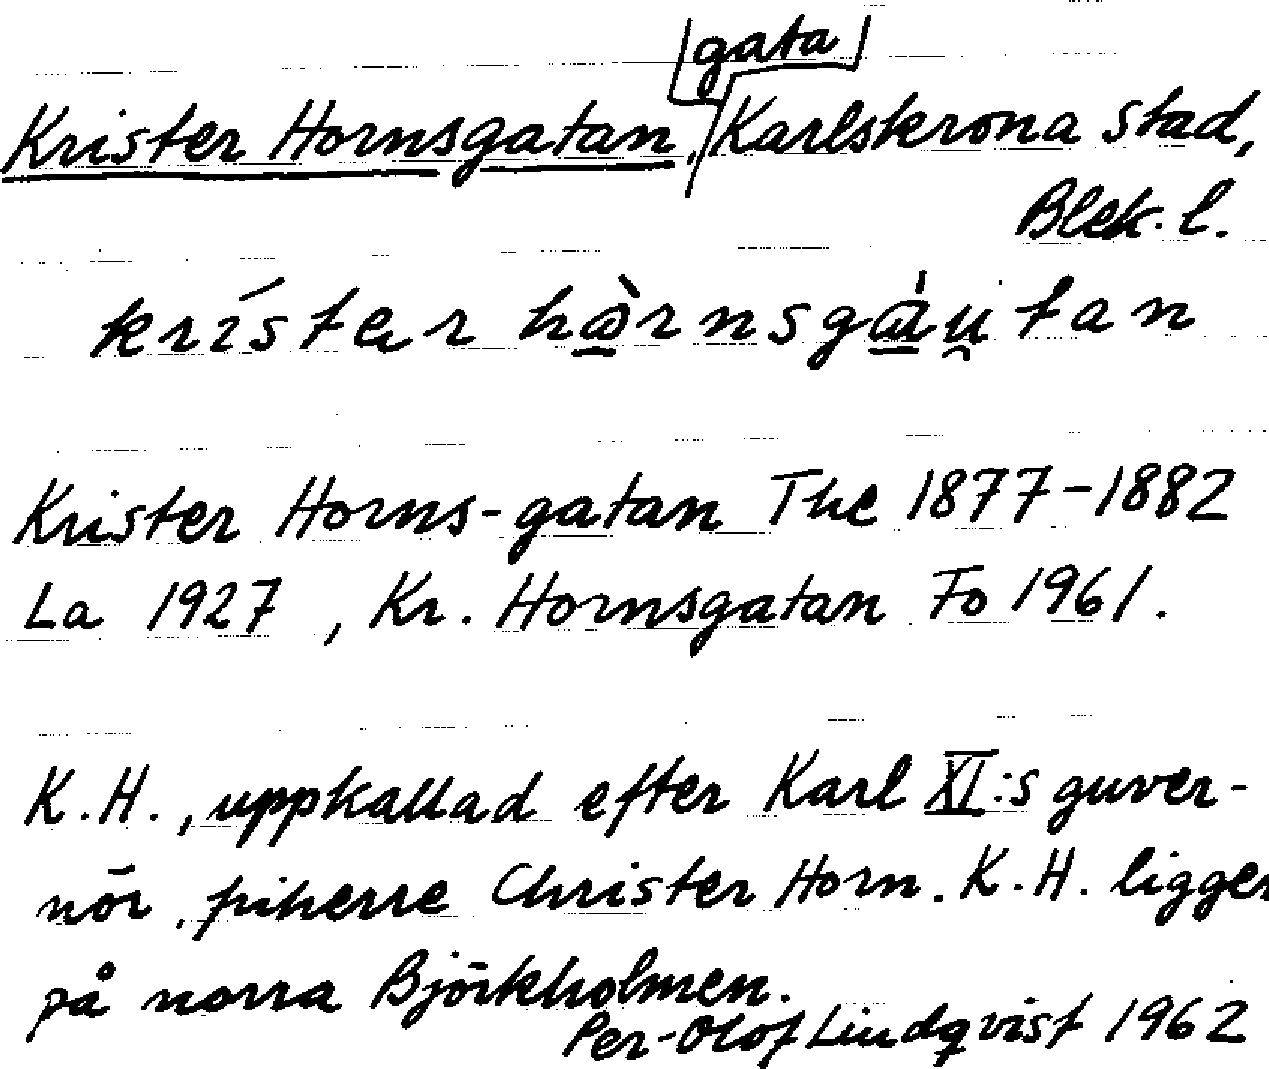 gata
Krister Hornsgatan, Karlskrona stad,
Blek. l.
krístar hɑ̀rnsgɑ́u̯tan
Krister Horns-gatan The 1877-1882
La 1927, Kr. Hornsgatan Fo 1961.
K.H., uppkallad efter Karl XI:s guver-
nör, friherre Christer Horn. K.H. ligger
på norra Björkholmen.
Per-Olof Lindqvist 1962